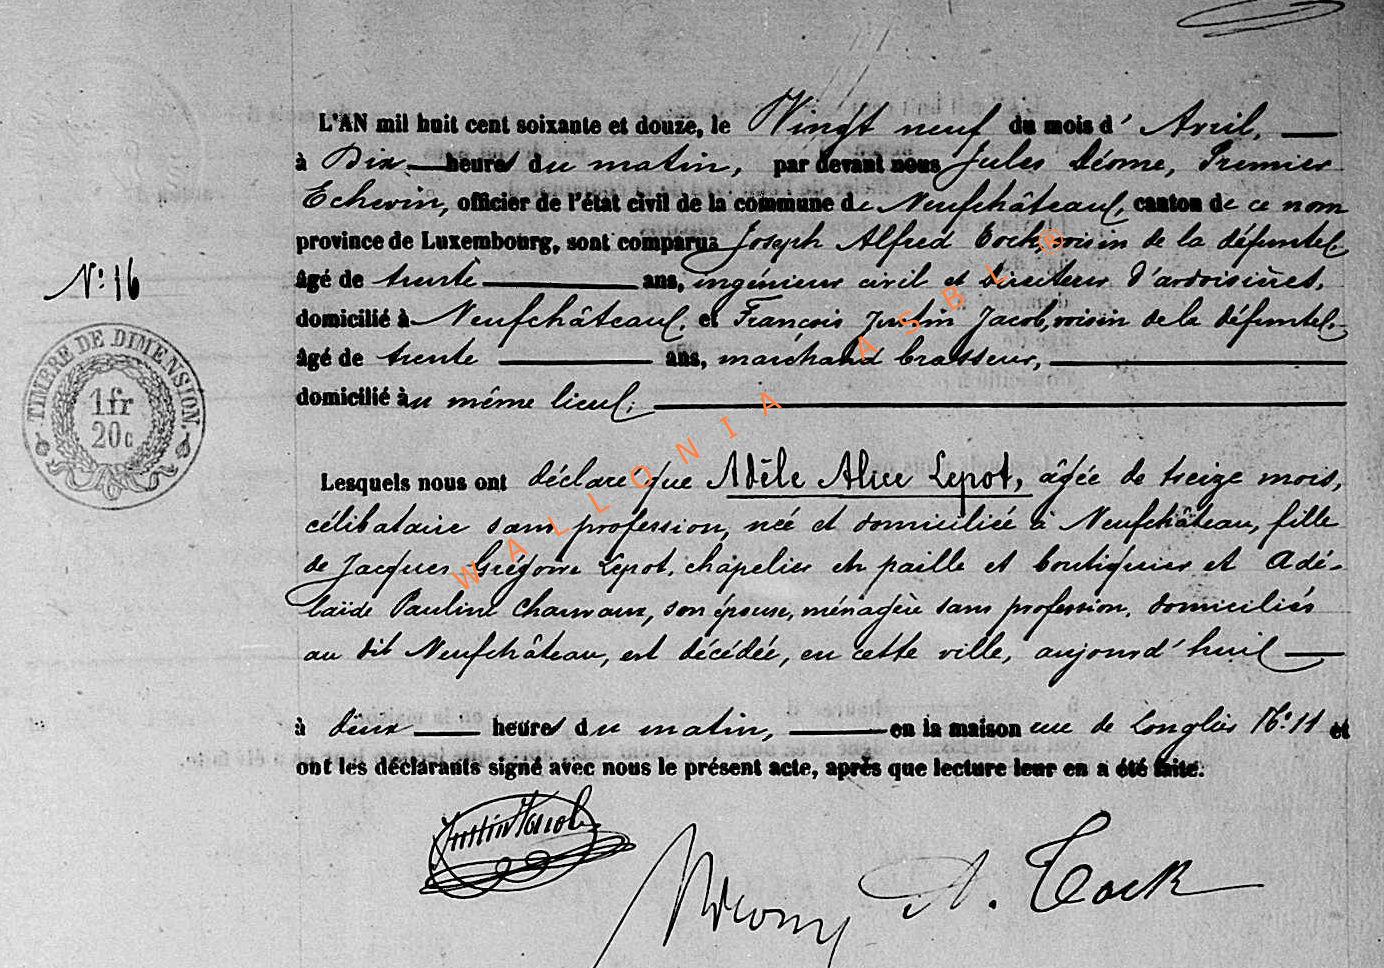 L'AN mil huit cent soixante et douze, le Vingt neuf du mois d' Avril,
à Dix heures du matin, par devant nous Jules Déome, Premier
Echevin, officier de l'état civil de la commune de Neufchâteau, canton de ce nom
province de Luxembourg, sont comparus Joseph Alfred Tock, voisin de la défunte,
âgé de trente ans, ingénieur civil et Directeur d'ardoisières,
N° 16
domicilié à Neufchâteau, et François Justin Jacob, voisin de la défunte,
âgé de trente ans, marchand brasseur,
domicilié au même lieu;
TIMBRE DE DIMENSION.
1fr
20c
Lesquels nous ont déclaré que Adèle Alice Lepot, âgée de treize mois,
célibataire sans profession, née et domiciliée à Neufchâteau, fille
de Jacques Grégoire Lepot, chapelier en paille et boutiquier et Adé-
laïde Pauline Chauvaux, son épouse, ménagère sans profession, domiciliés
au dit Neufchâteau, est décédée, en cette ville, aujourd'hui
à deux heures du matin, en la maison rue de Longlier N° 11 et
ont les déclarants signé avec nous le présent acte, après que lecture leur en a été faite.
Justin Jacob
A. Tock
WALLONIA ASBL ®